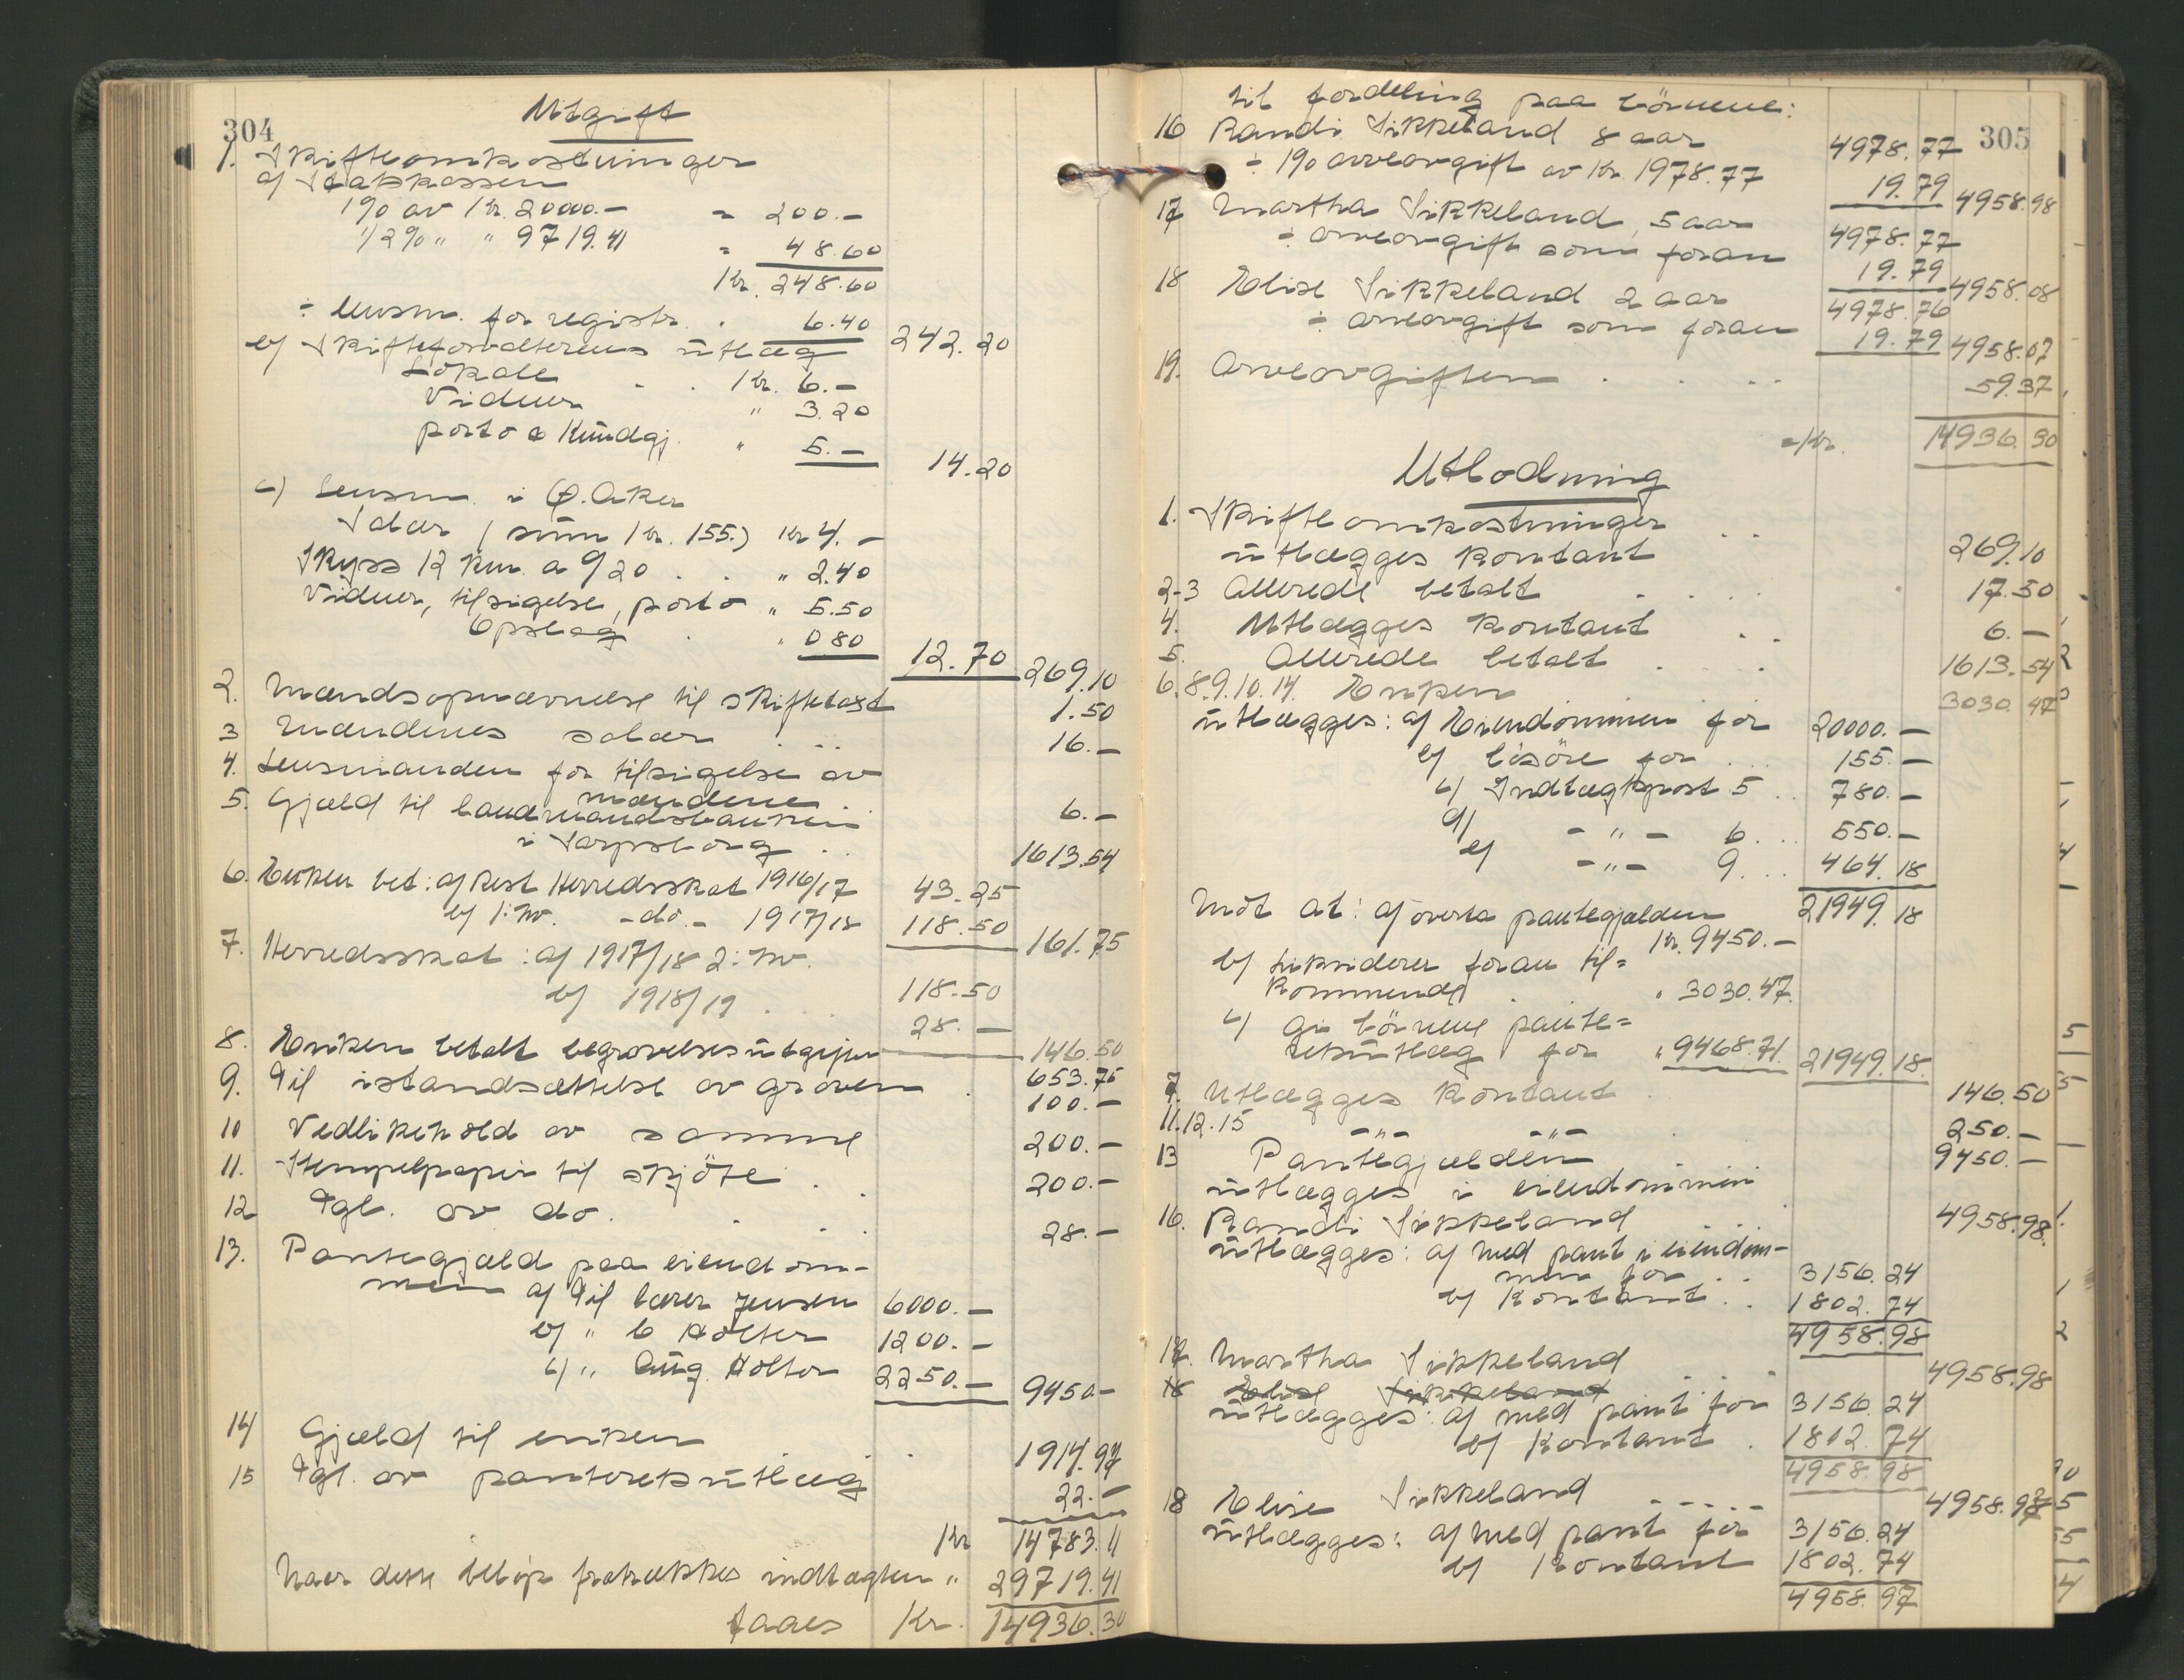 304
Utgift
1. Skifteomkostninger
a/ Statskassen
1% av Kr. 20000.- = 200.-
1/2% " " 9719.41 = 48.60
Kr. 248.60
÷ lensm. for registr. . 6.40 242.20
b/ Skifteforvalterens utlæg
Lokale . . Kr. 6.-
Vidner " 3.20
porto & Kundgj. " 5.- 14.20
c/ Lensm. i Ø. Aker
Salær (sum Kr. 155.) Kr 4.-
Skyss 12 km. a 9/20 . . " 2.40
Vidner, tilsigelse, porto " 5.50
Opslag . " 0.80 12.70 269.10
2. Mandsopnævnelse til skiftetakst 1.50
3 Mændenes salær . . . 16.-
4. Lensmanden for tilsigelse av
mændene . . 6.-
5. Gjæld til landmandsbanken
i Sarpsborg . . 1613.54
6. Enken bet: a/ Rest Herredsskat 1916/17 43.25
b/ 1: hv. -do.- 1917/18 118.50 161.75
7. Herredsskat: a/ 1917/18 2: hv. 118.50
b/ 1918/19 . . . 28.- 146.50
8. Enken betalt begravelsesutgifter 653.75
9. Til istandsættelse av graven . 100.-
10 Vedlikehold av samme 200.-
11. Stempelpapir til skjøte . . 200.-
12 Tgl. av do. . . . 28.-
13. Pantegjæld paa eiendom-
men a/ Til lærer Jensen 6000.-
b/ " C Holter 1200.-
c/ " Aug. Holter 2250.- 9450-
14 Gjæld til enken . 1914.97
15 Tgl. av panteretsutlæg 22.-
Kr 14783.11
Naar dette beløp fratrækkes indtægten " 29719.41
faaes Kr. 14936.30
305
til fordeling paa børnene:
16 Randi Sikkeland 8 aar 4978.77
÷ 1% arveavgift av Kr. 1978.77 19.79 4958.98
17 Martha Sikkeland, 5 aar 4978.77
÷ arveavgift som foran 19.79 4958.98
18 Elise Sikkeland 2 aar 4978.76
÷ arveavgift som foran 19.79 4958.97
19. Arveavgiften . . . . 59.37
= Kr. 14936.30
Utlodning
1. Skifteomkostninger . .
utlægges kontant 269.10
2-3 Allerede betalt . . . . 17.50
4. Utlægges kontant . . 6.-
5. Allerede betalt . . . 1613.54
6. 8. 9. 10. 14. Enken . . . 3030.47
utlægges: a/ Eiendommen for 20000.-
b/ løsøre for . . . 155.-
c/ Indtægtspost 5 . . 780.-
d/ - " - 6 . . . 550.-
e/ - " - 9. . . . 464.18
Mot at: a/ overta pantegjælden 21949.18
Kr. 9450.-
b/ Likviderer foran til=
kommende . " 3030.47.
c/ Gi børnene pante=
retsutlæg for " 9468.71. 21949.18.
7. Utlægges kontant . 146.50
11. 12. 15 - " - - " - . 250.-
13 Pantegjælden 9450.-
utlægges i eiendommen
16. Randi Sikkeland . 4958.98.
utlægges: a/ med pant i eiendom-
men for . . 3156.24
b/ Kontant . . 1802.74
4958.98
17. Martha Sikkeland . . 4958.98
18 Elise Sikkeland
utlægges: a/ med pant for 3156.24
b/ Kontant . 1802.74
4958.98
18 Elise Sikkeland - - - - - 4958.97
utlægges: a/ med pant for 3156.24
b/ Kontant 1802.74
4958.97